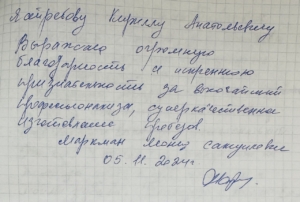 Хайрекову Кириллу Анатольевичу
Выражаю огромную
благодарность и искреннюю
признательность за
профессионализм, суперкачественное
изготовление протезов.
Маркман Леонид Самуилович
05.11.2024г